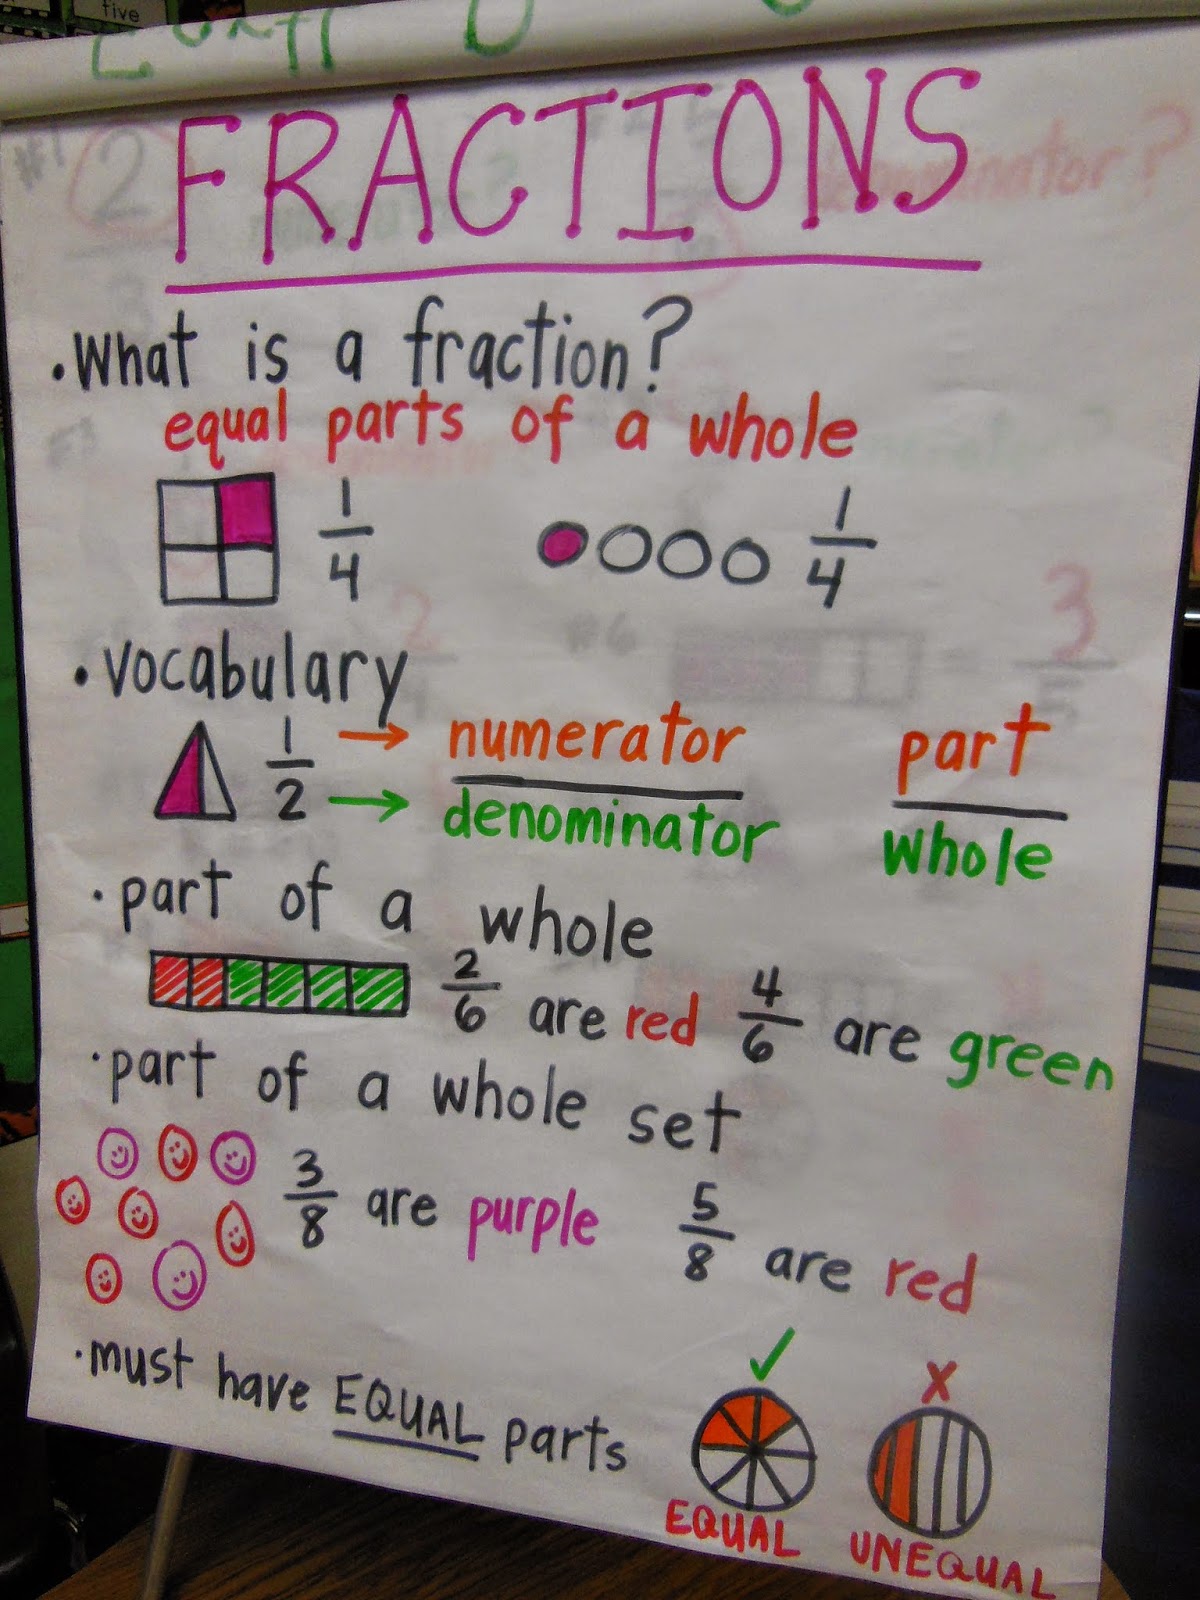 five
FRACTIONS
• What is a fraction?
equal parts of a whole
1/4 1/4
• vocabulary
1/2 → numerator part
→ denominator whole
• part of a whole
2/6 are red 4/6 are green
• part of a whole set
3/8 are purple 5/8 are red
• must have EQUAL parts
✓ X
EQUAL UNEQUAL
#1 2
denominator?
#6 3/5
2/4